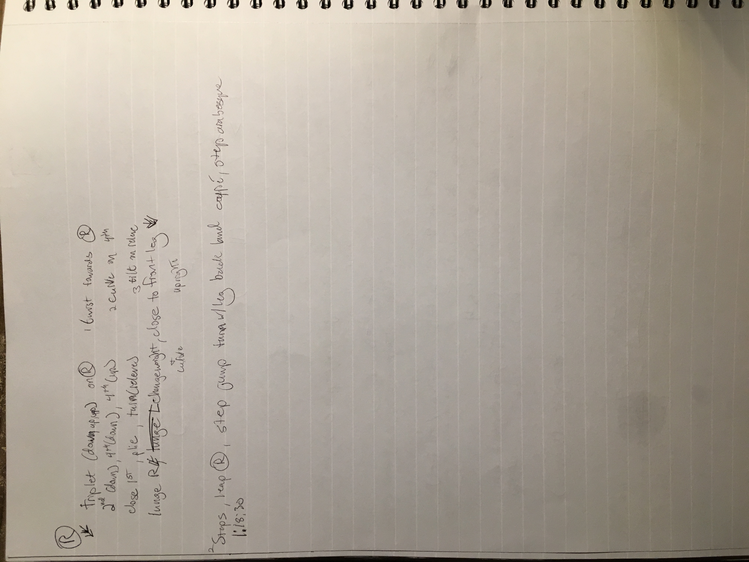 R
triplet (down, up, up) on R 1 twist towards R
2nd (down), 4th (down), 4th (up) 2 curve on 4th
close 1st, plie, turn (releve) 3 tilt on releve
lunge R change weight, close to front leg
curve upright
2 steps, leap R, step jump turn w/leg back land coupé, step arabesque
1:18:30